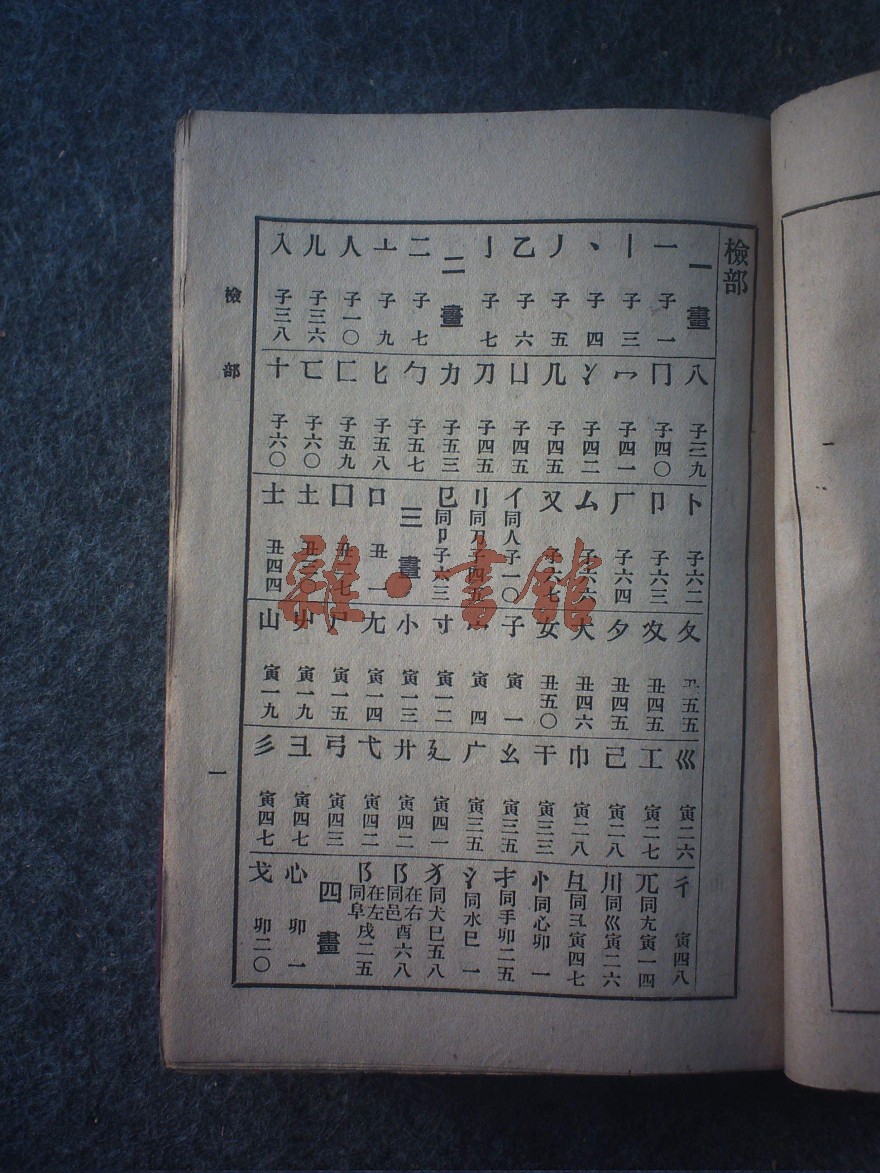 檢部
一畫
一 子一
丨 子三
丶 子四
丿 子五
乙 子六
亅 子七
二畫
二 子七
亠 子九
人 子一〇
儿 子三六
入 子三八
八 子三九
冂 子四〇
冖 子四一
冫 子四二
几 子四五
凵 子四五
刀 子四五
力 子五三
勹 子五七
匕 子五八
匚 子五九
匸 子六〇
十 子六〇
卜 子六二
卩 子六三
厂 子六四
厶 子六六
又 子六七
亻同人子一〇
刂同刀子四五
㔾同卩子六三
三畫
口 丑一
囗 丑 七
土 丑
士 丑四四
夂 丑五五
夊 丑四五
夕 丑四五
大 丑四六
女 丑五〇
子 寅一
宀 寅四
寸 寅一二
小 寅一三
尢 寅一四
尸 寅一五
屮 寅一九
山 寅一九
巛 寅二六
工 寅二七
己 寅二八
巾 寅二八
干 寅三三
幺 寅三五
广 寅三五
廴 寅四一
廾 寅四二
弋 寅四二
弓 寅四三
彐 寅四七
彡 寅四七
彳 寅四八
兀同尢寅一四
川同巛寅二六
彑同彐寅四七
忄同心卯一
扌同手卯二五
氵同水巳一
犭同犬巳五八
阝在右同邑酉六八
阝在左同阜戌二五
四畫
心 卯一
戈 卯二〇
檢部
一
雜·書館